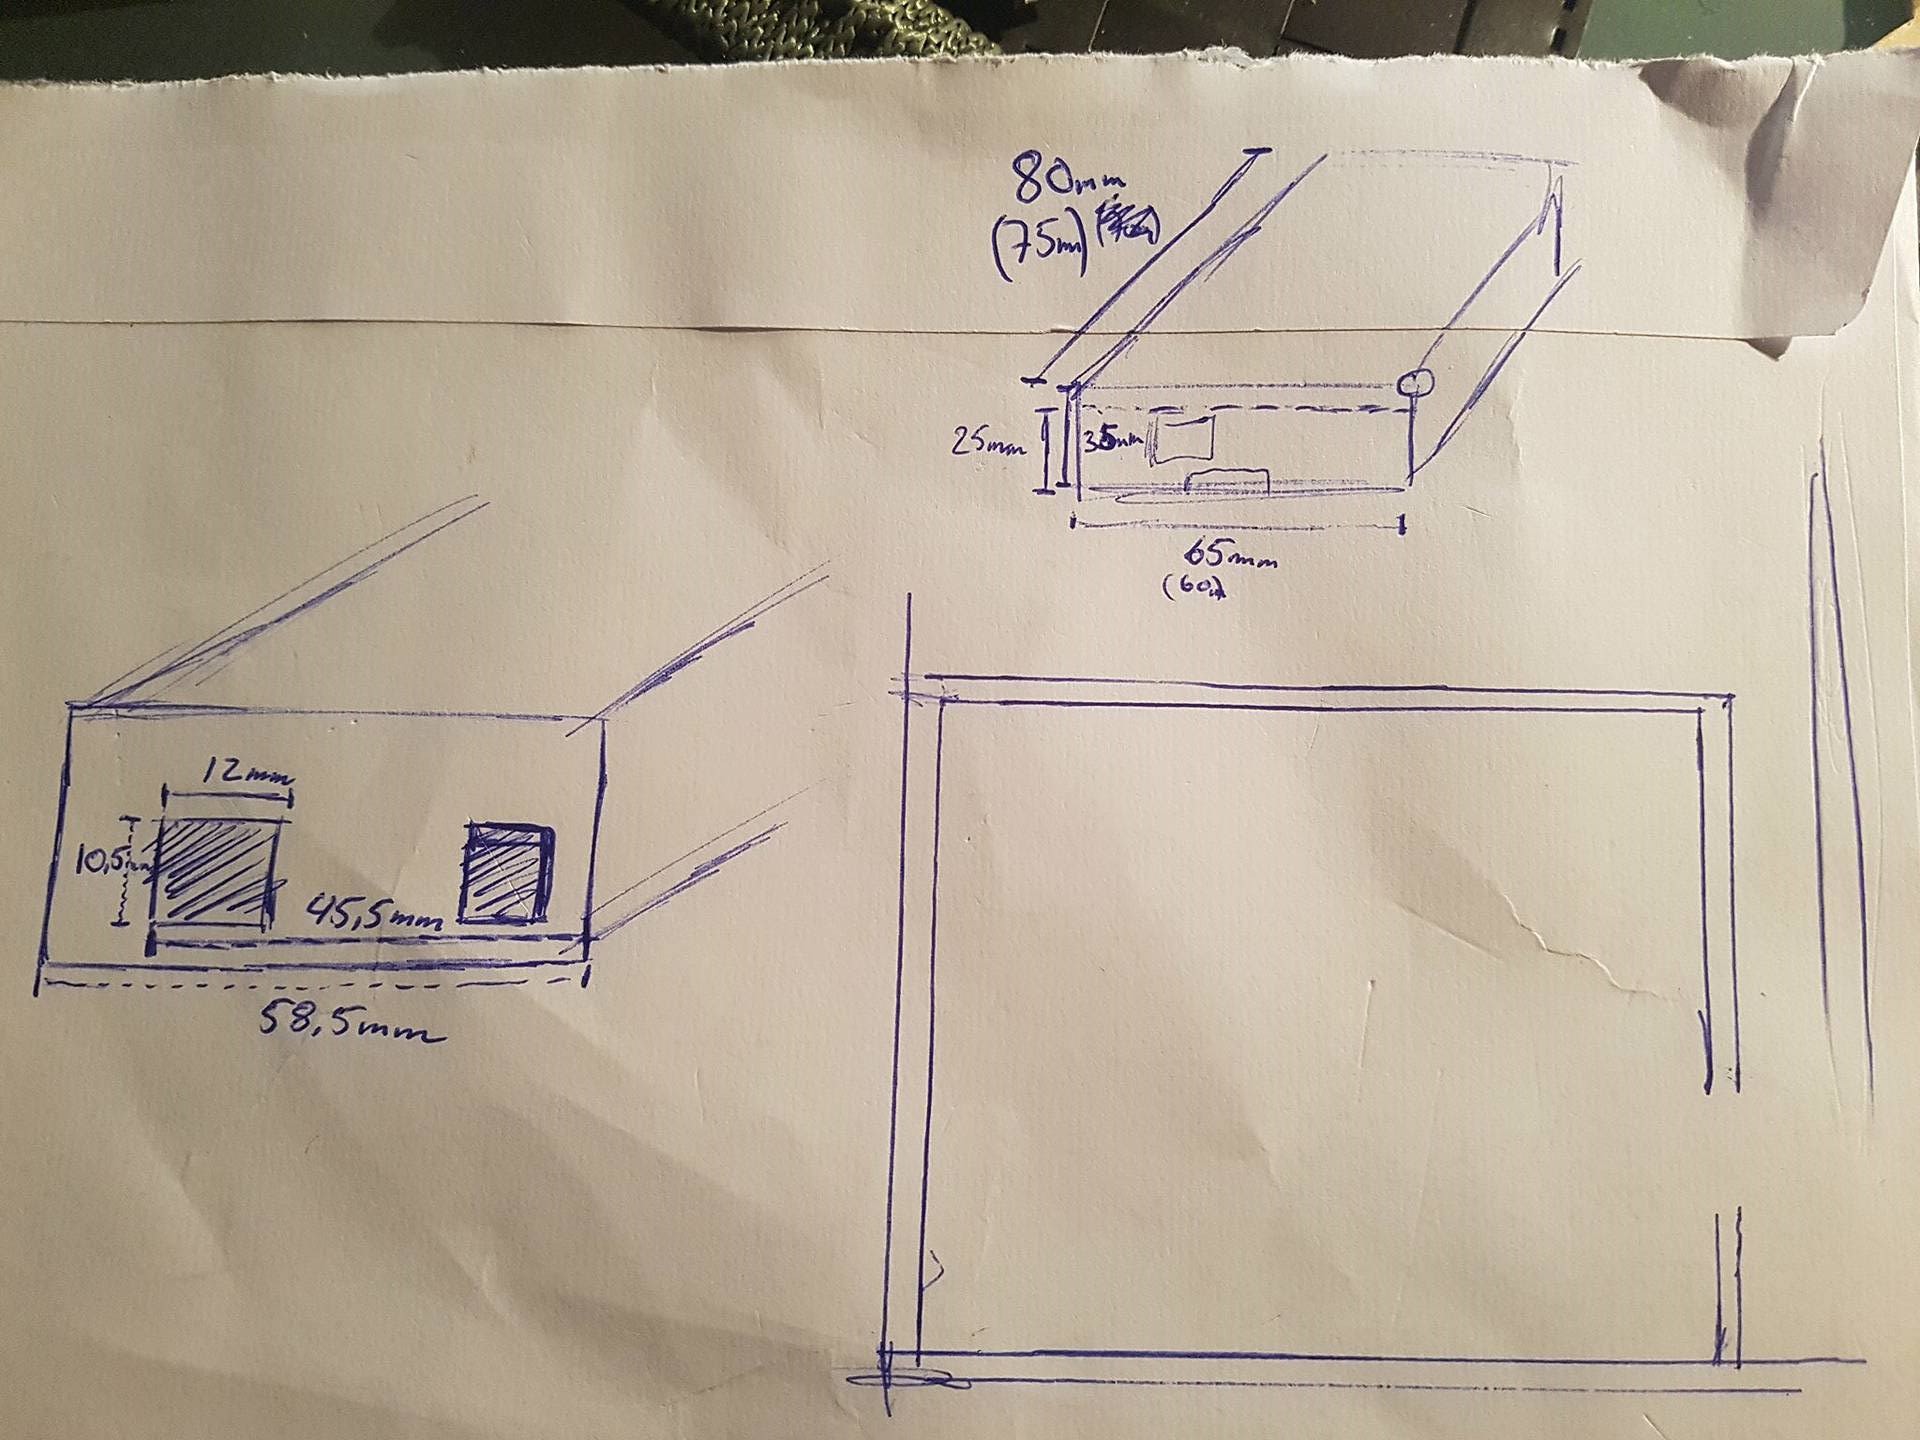 80mm
(75m)
25mm
35mm
65mm
(60m)
12mm
10,5mm
45,5mm
58,5mm